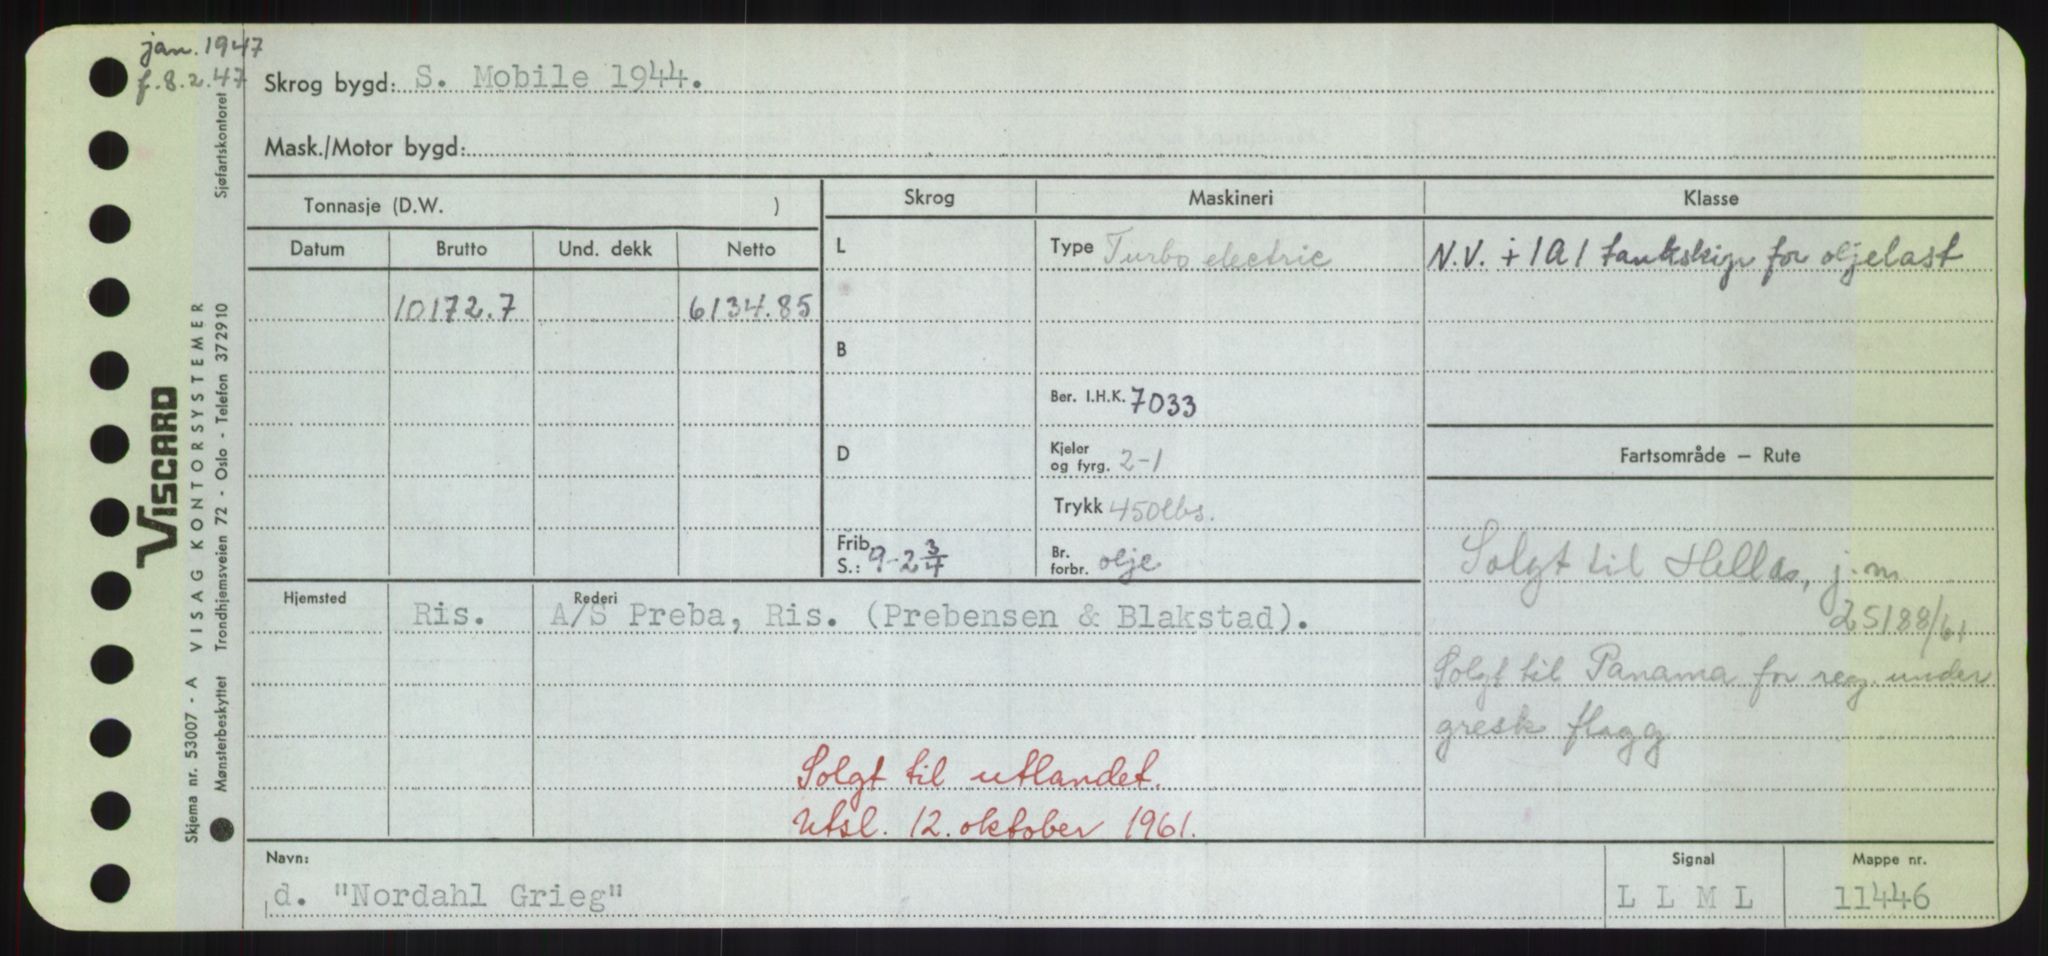 jan. 1947
f. 8.2.47
Skrog bygd: S. Mobile 1944.
Mask./Motor bygd:
Tonnasje (D.W. )
Skrog
Maskineri
Klasse
Datum
Brutto
Und. dekk
Netto
L
Type Turbo electric
N.V. + 1A1 tankskip for oljelast
10172.7
6134.85
B
Ber. I.H.K. 7033
D
Kjeler
og fyrg. 2-1
Fartsområde — Rute
Trykk 450lbs.
Frib.
S.: 9-2 3/4
Br.
forbr. olje
Solgt til Hellas, j.nr.
25188/61
Solgt til Panama for reg. under
gresk flagg
Hjemsted
Ris.
Rederi
A/S Preba, Ris. (Prebensen & Blakstad).
Solgt til utlandet.
Utsl. 12. oktober 1961.
Navn:
d. "Nordahl Grieg"
Signal
L L M L
Mappe nr.
11446
VISCARD
Skjema nr. 53007 - A VISAG KONTORSYSTEMER
Mønsterbeskyttet Trondhjemsveien 72 - Oslo - Telefon 372910 Sjøfartskontoret